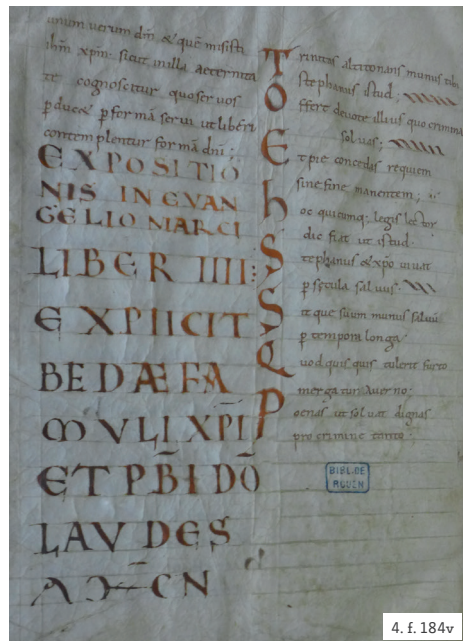 unum verum dm̄ & quē misisti
ihm̄ xpm̄. sicut in illa aeternita
te cognoscetur quo servos
ꝑduc& ꝑ formā servi ut liberi
contemplentur formā dn̄i;
EXPOSITIO
NIS IN EVAN
GELIO MARCI
LIBER IIII:
EXPLICIT
BEDAE FA
MVLI XP̄I
ET PB̄I DŌ
LAVDES
AMEN
Trinitas altitonans munus tibi
Stephanus istud;
Offert devote illius quo crimina
solvas;
Et pie concedas requiem
sine fine manentem;
hoc quicumq; legis lector
dic fiat ut istud
Stephanus & xp̄o vivat
ꝑ saecula salvus.
Sitque suum munus salvū
ꝑ tempora longa
Quod quisquis tulerit furto
mergatur averno.
Poenas ut solvat dignas
pro crimine tanto.
BIBL. DE
ROUEN
4. f. 184v